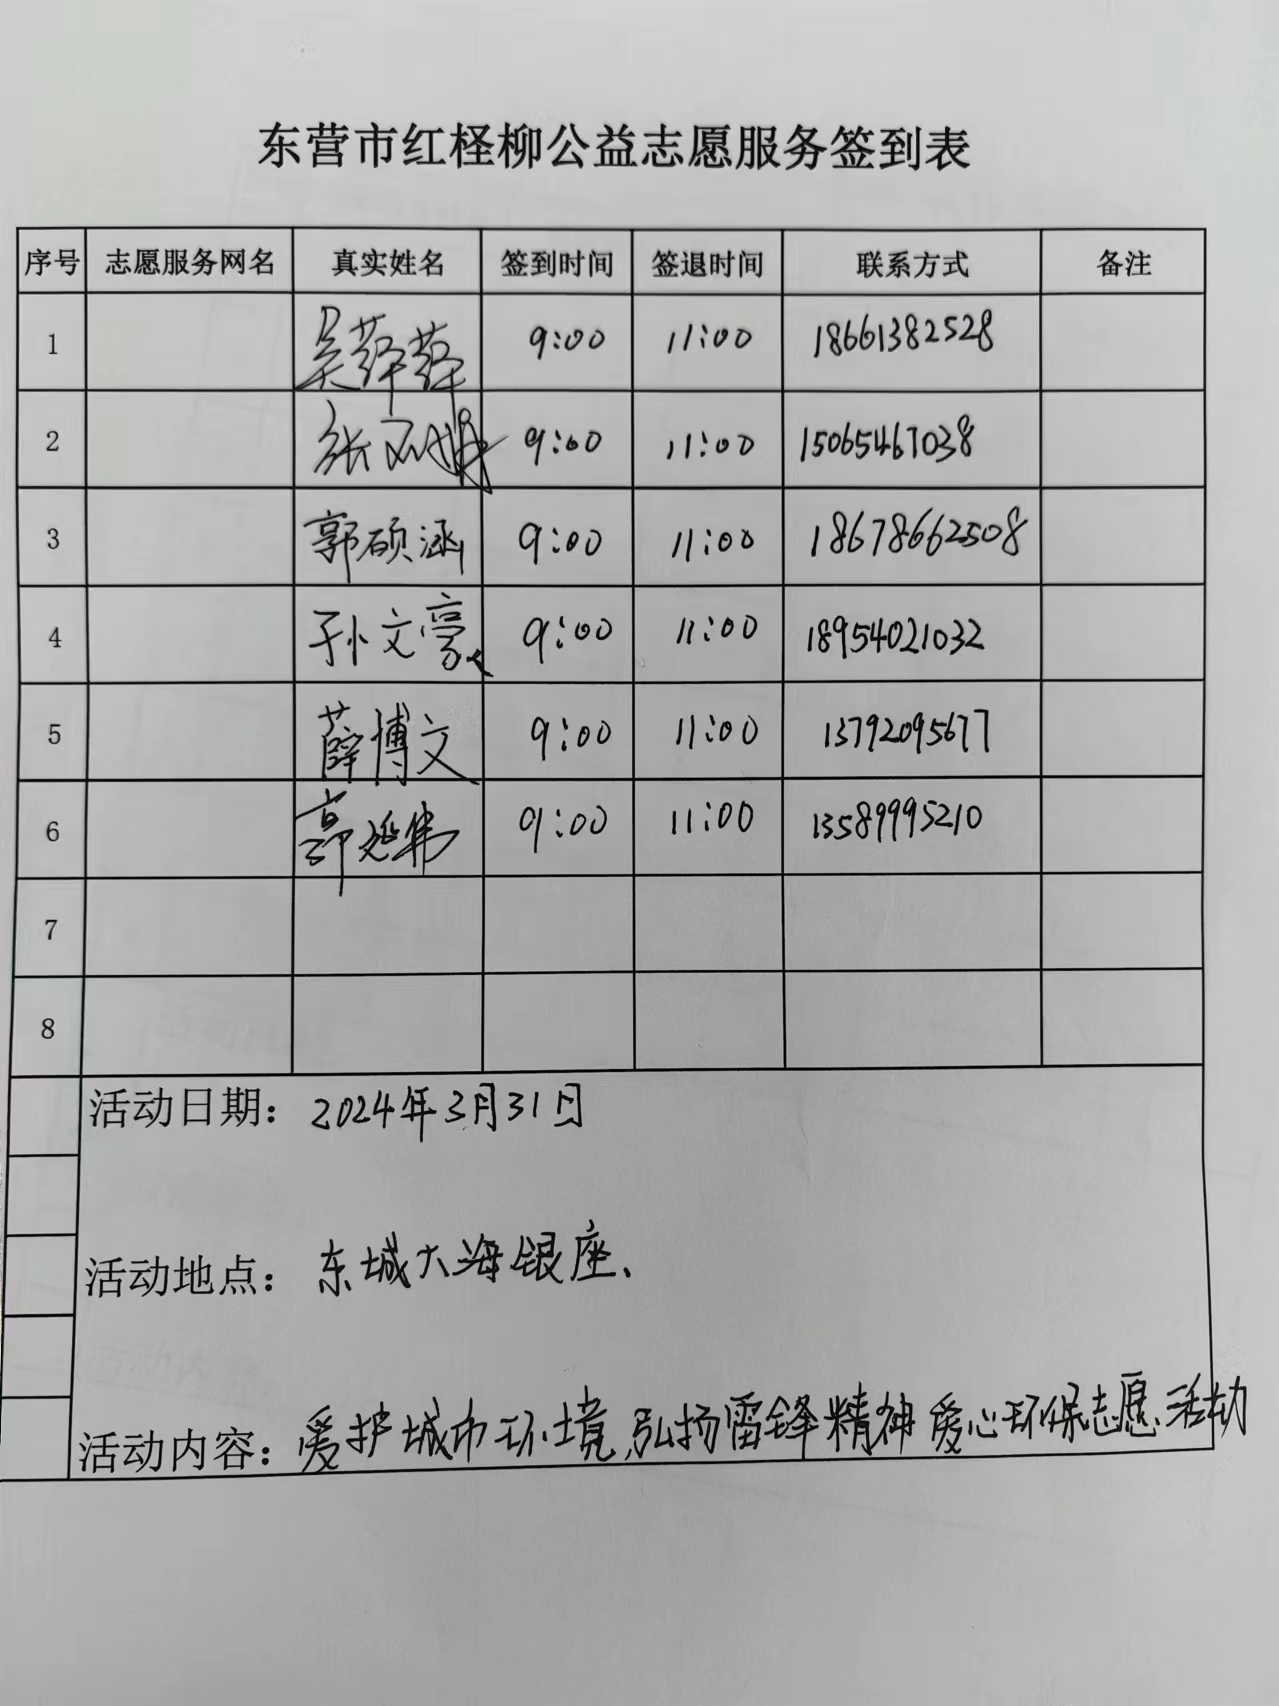 东营市红柽柳公益志愿服务签到表
序号 志愿服务网名 真实姓名 签到时间 签退时间 联系方式 备注
1 吴萍萍 9:00 11:00 18661382528
2 张 9:00 11:00 15065467038
3 郭硕涵 9:00 11:00 18678662508
4 孙文豪 9:00 11:00 18954021032
5 薛博文 9:00 11:00 13792095677
6 9:00 11:00 13589995210
7
8
活动日期：2024年3月31日
活动地点：东城大海银座、
活动内容：爱护城市环境，弘扬雷锋精神 爱心环保志愿活动